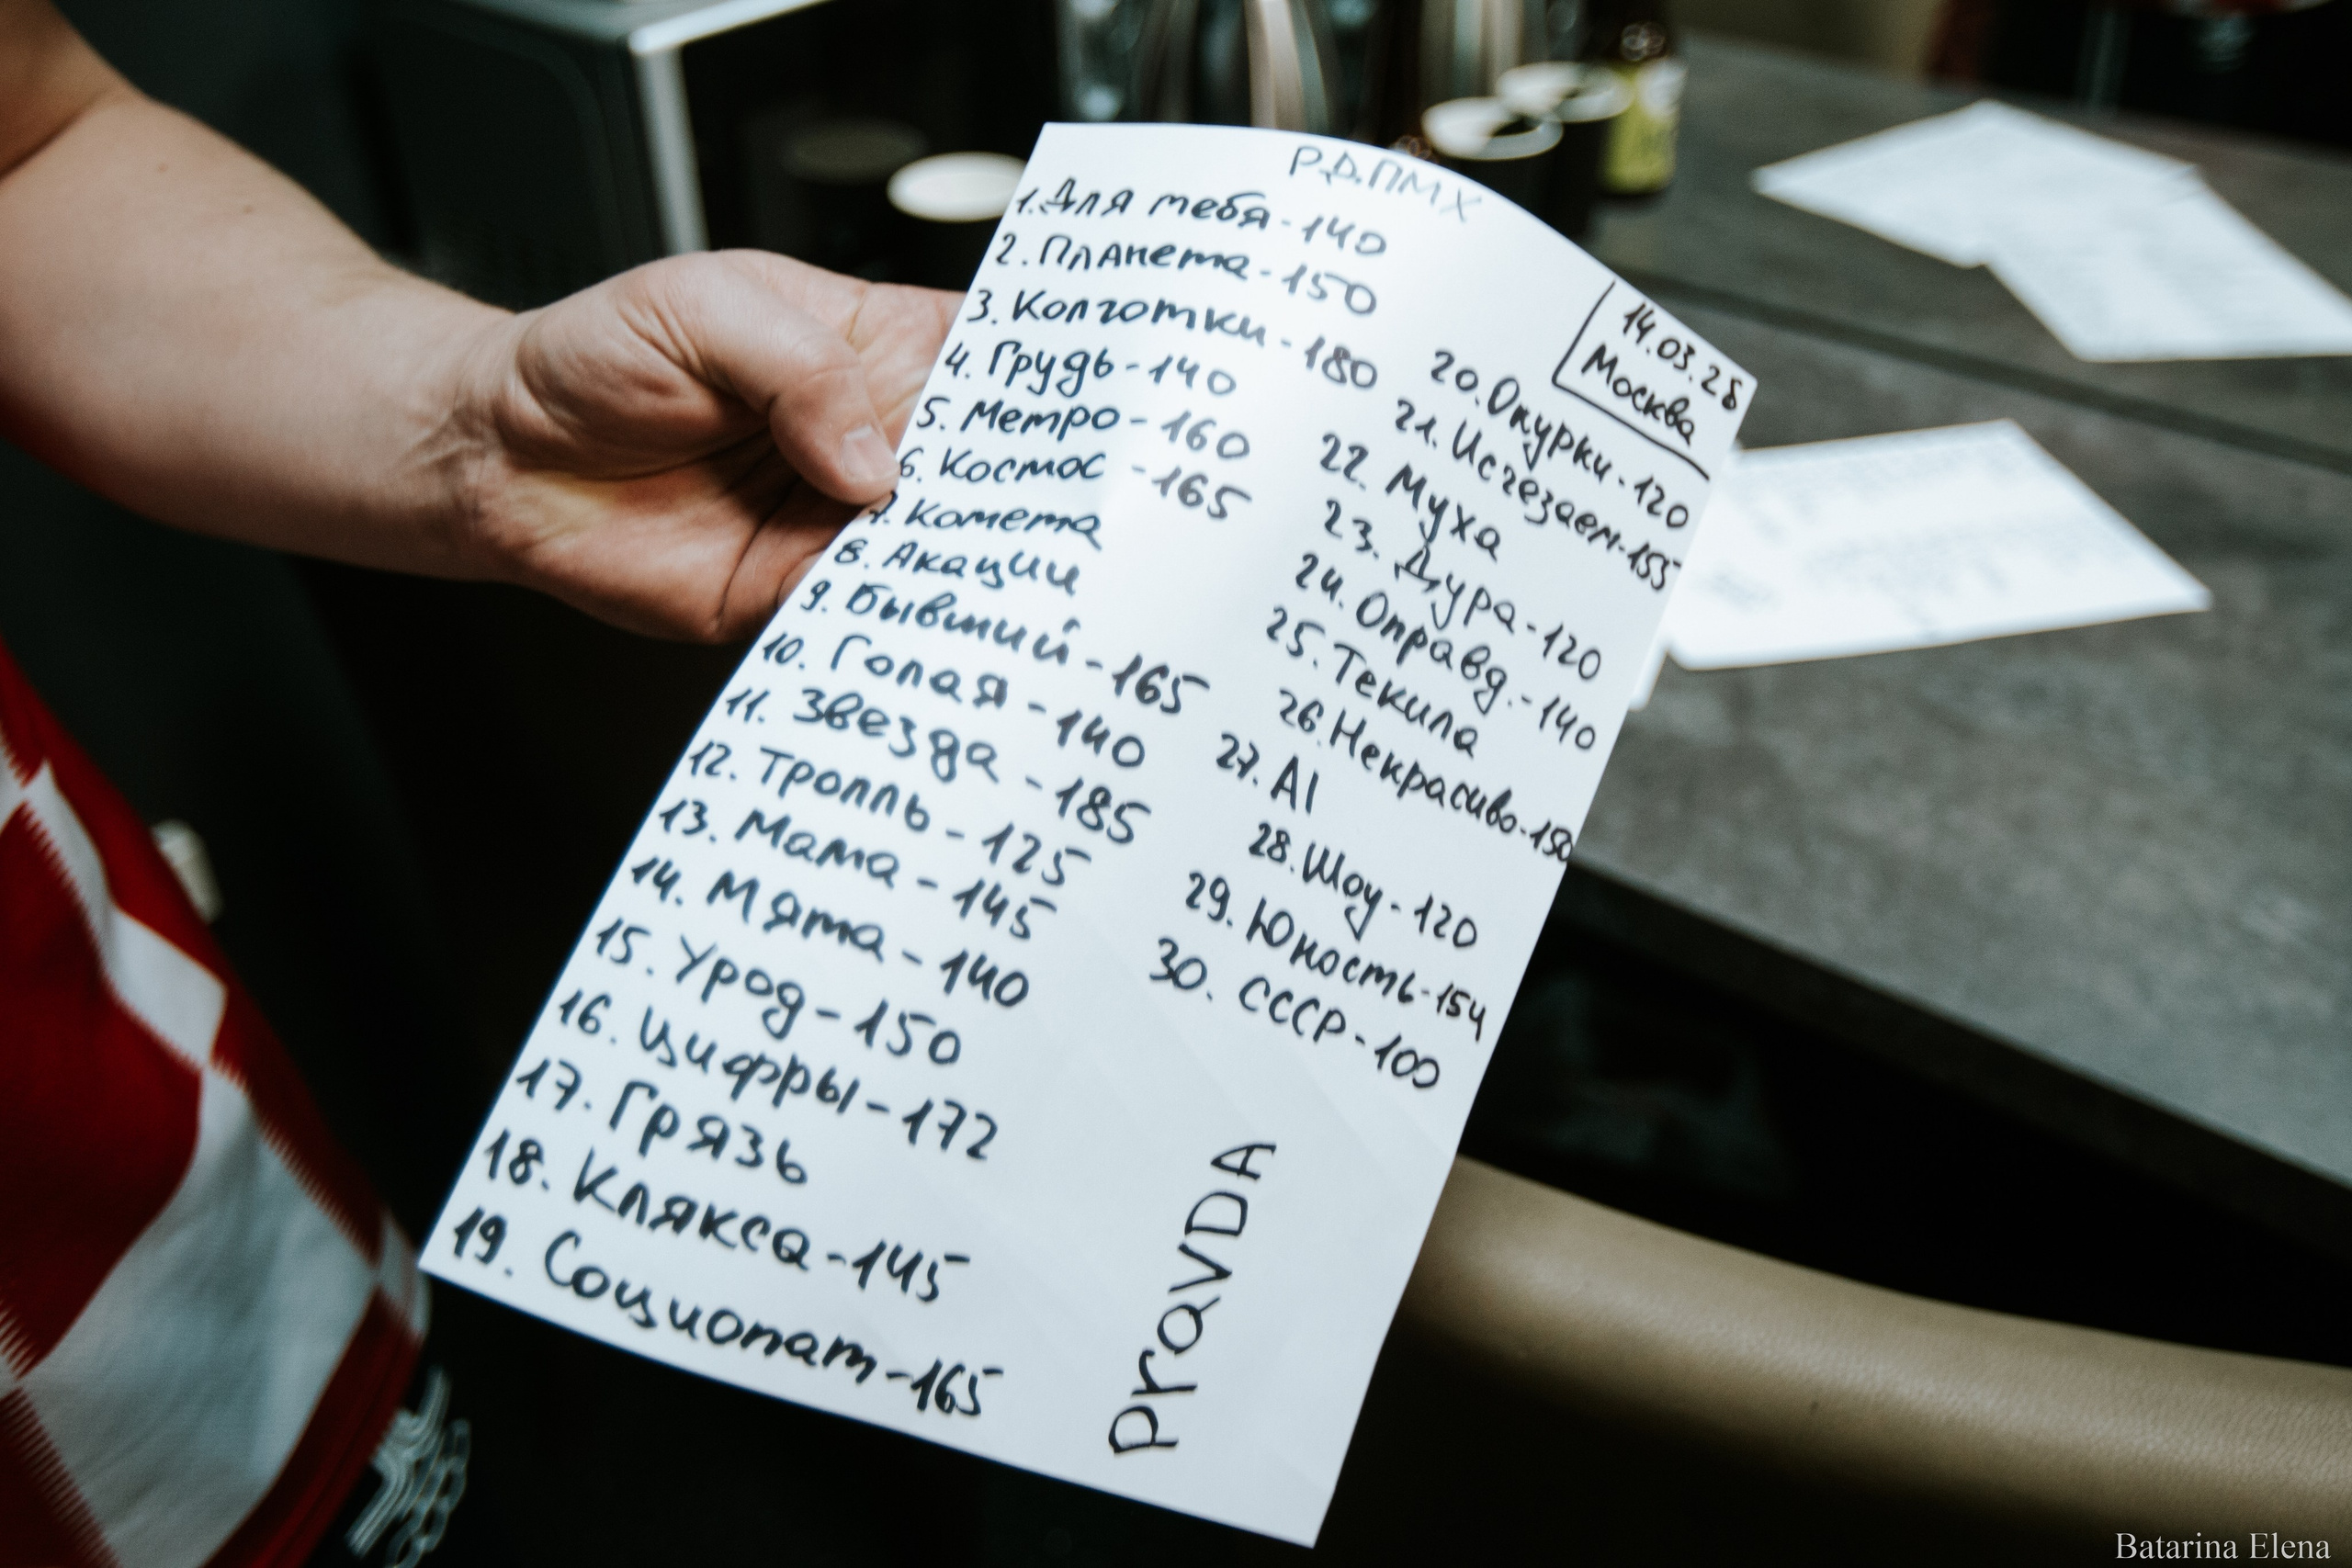 РДПМХ
14.03.25
Москва
1. Для тебя - 140
2. Планета - 150
3. Колготки - 180
4. Грудь - 140
5. Метро - 160
6. Космос - 165
7. Комета
8. Акации
9. Бывший - 165
10. Голая - 140
11. Звезда - 185
12. Тролль - 125
13. Мама - 145
14. Мята - 140
15. Урод - 150
16. Цифры - 172
17. Грязь
18. Клякса - 145
19. Социопат - 165
20. Окурки - 120
21. Исчезаем - 155
22. Муха
23. Дура - 120
24. Оправд. - 140
25. Текила
26. Некрасиво - 150
27. AI
28. Шоу - 120
29. Юность - 154
30. СССР - 100
PRaVDA
Batarina Elena